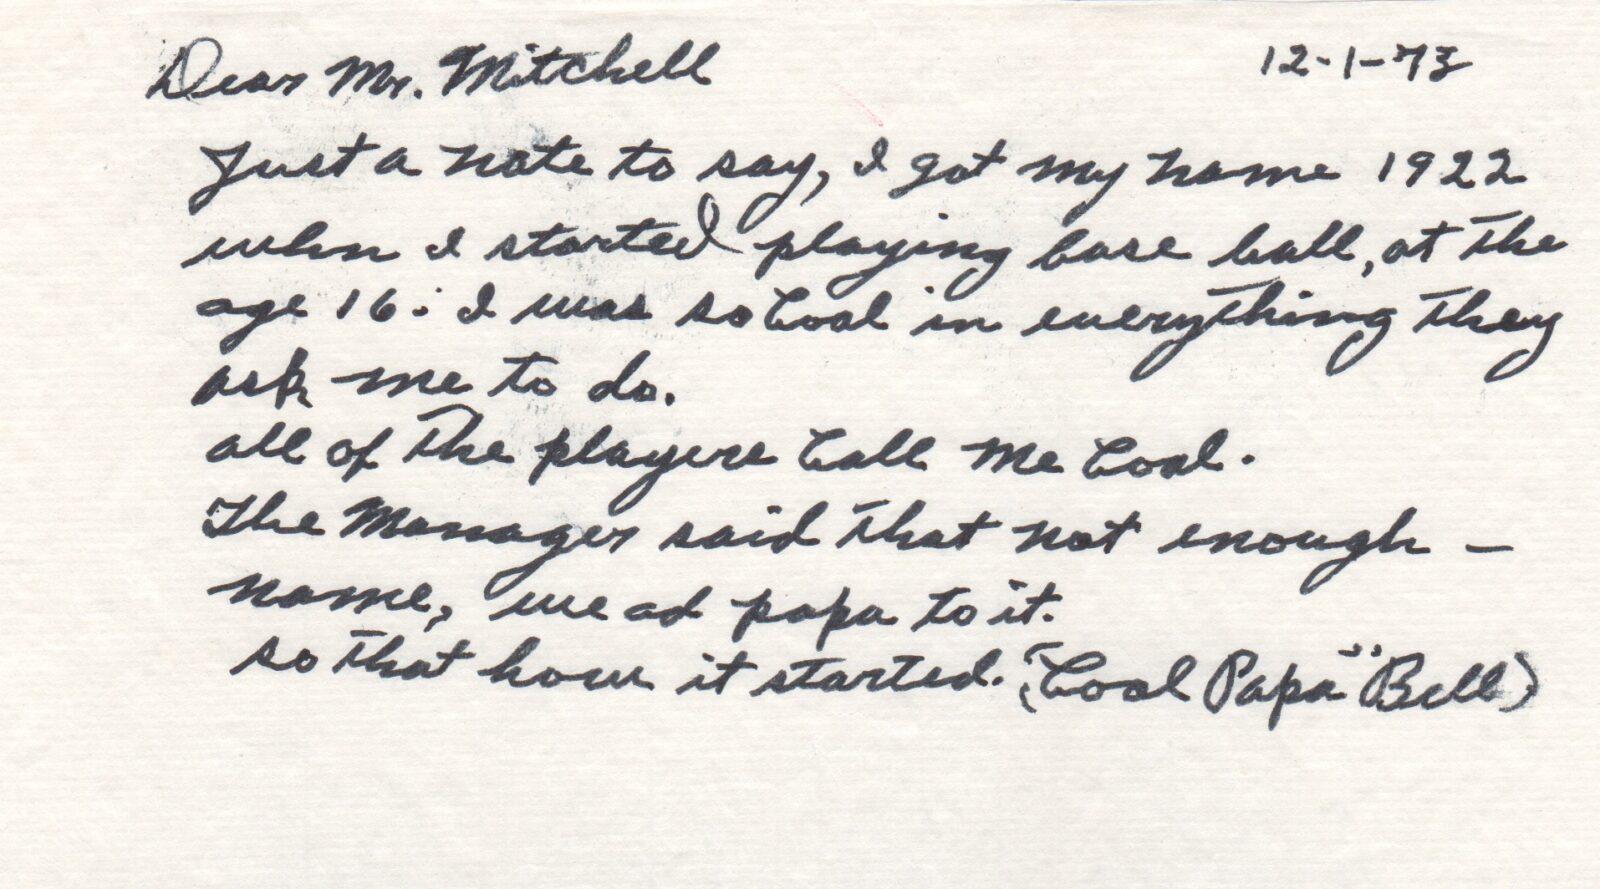 Dear Mr. Mitchell 12-1-73
Just a note to say, I got my name 1922
when I started playing base ball, at the
age 16. I was so Cool in everything they
ask me to do.
all of the players Call me Cool.
The Manager said that not enough –
name, we ad papa to it.
so that how it started. ("Cool Papa" Bell)